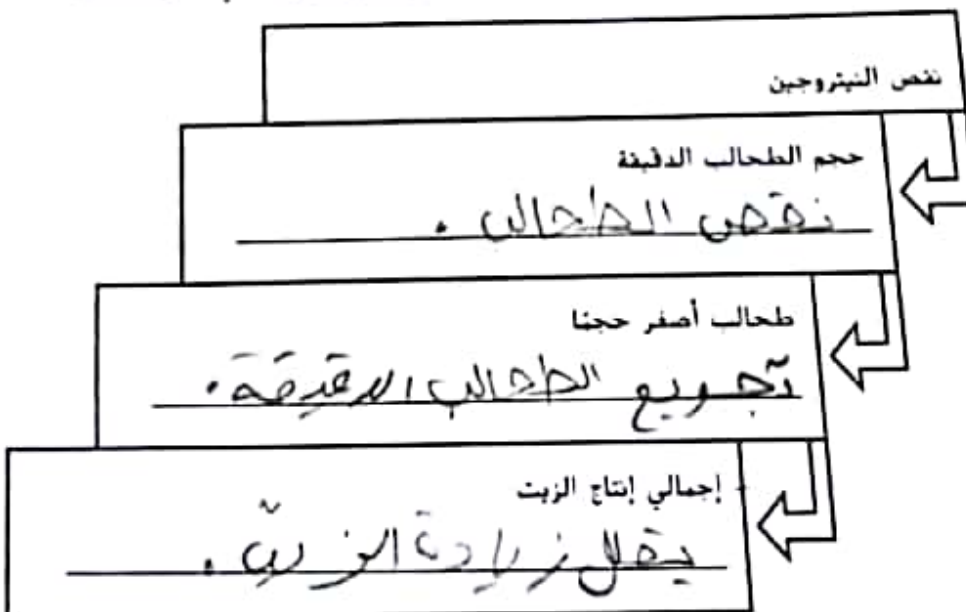 نقص النيتروجين
حجم الطحالب الدقيقة
نقص الطحالب .
طحالب أصغر حجمًا
تجويع الطحالب الدقيقة .
إجمالي إنتاج الزيت
يقلل زيادة الزيت .